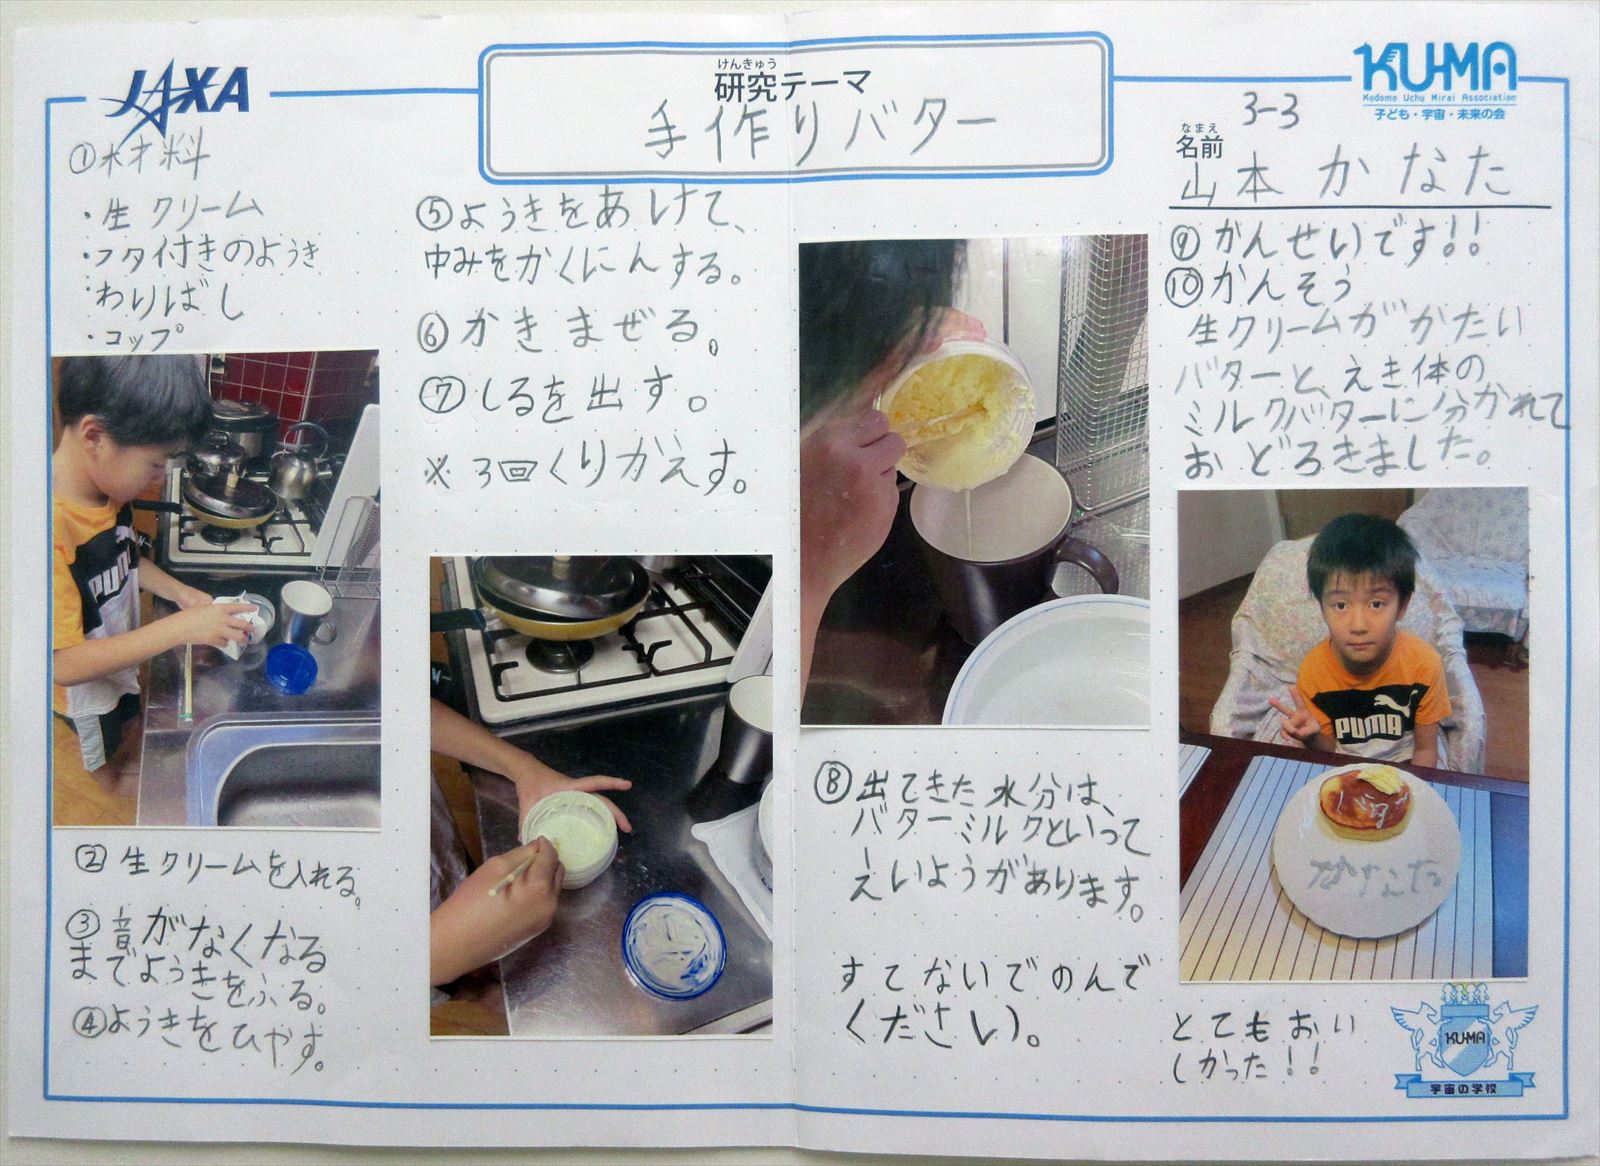 JAXA
けんきゅう
研究テーマ
手作りバター
KU-MA
Kodomo Uchu Mirai Association
子ども・宇宙・未来の会
3-3
なまえ
名前
山本かなた
①材料
・生クリーム
・フタ付きのようき
・わりばし
・コップ
PUMA
②生クリームを入れる。
③音がなくなる
までようきをふる。
④ようきをひやす。
⑤ようきをあけて、
中みをかくにんする。
⑥かきまぜる。
⑦しるを出す。
※3回くりかえす。
⑧出てきた水分は、
バターミルクといって
えいようがあります。
すてないでのんで
ください。
⑨かんせいです!!
⑩かんそう
生クリームがかたい
バターと、えき体の
ミルクバターに分かれて
おどろきました。
PUMA
バタ
とてもおい
しかった!!
KU-MA
宇宙の学校